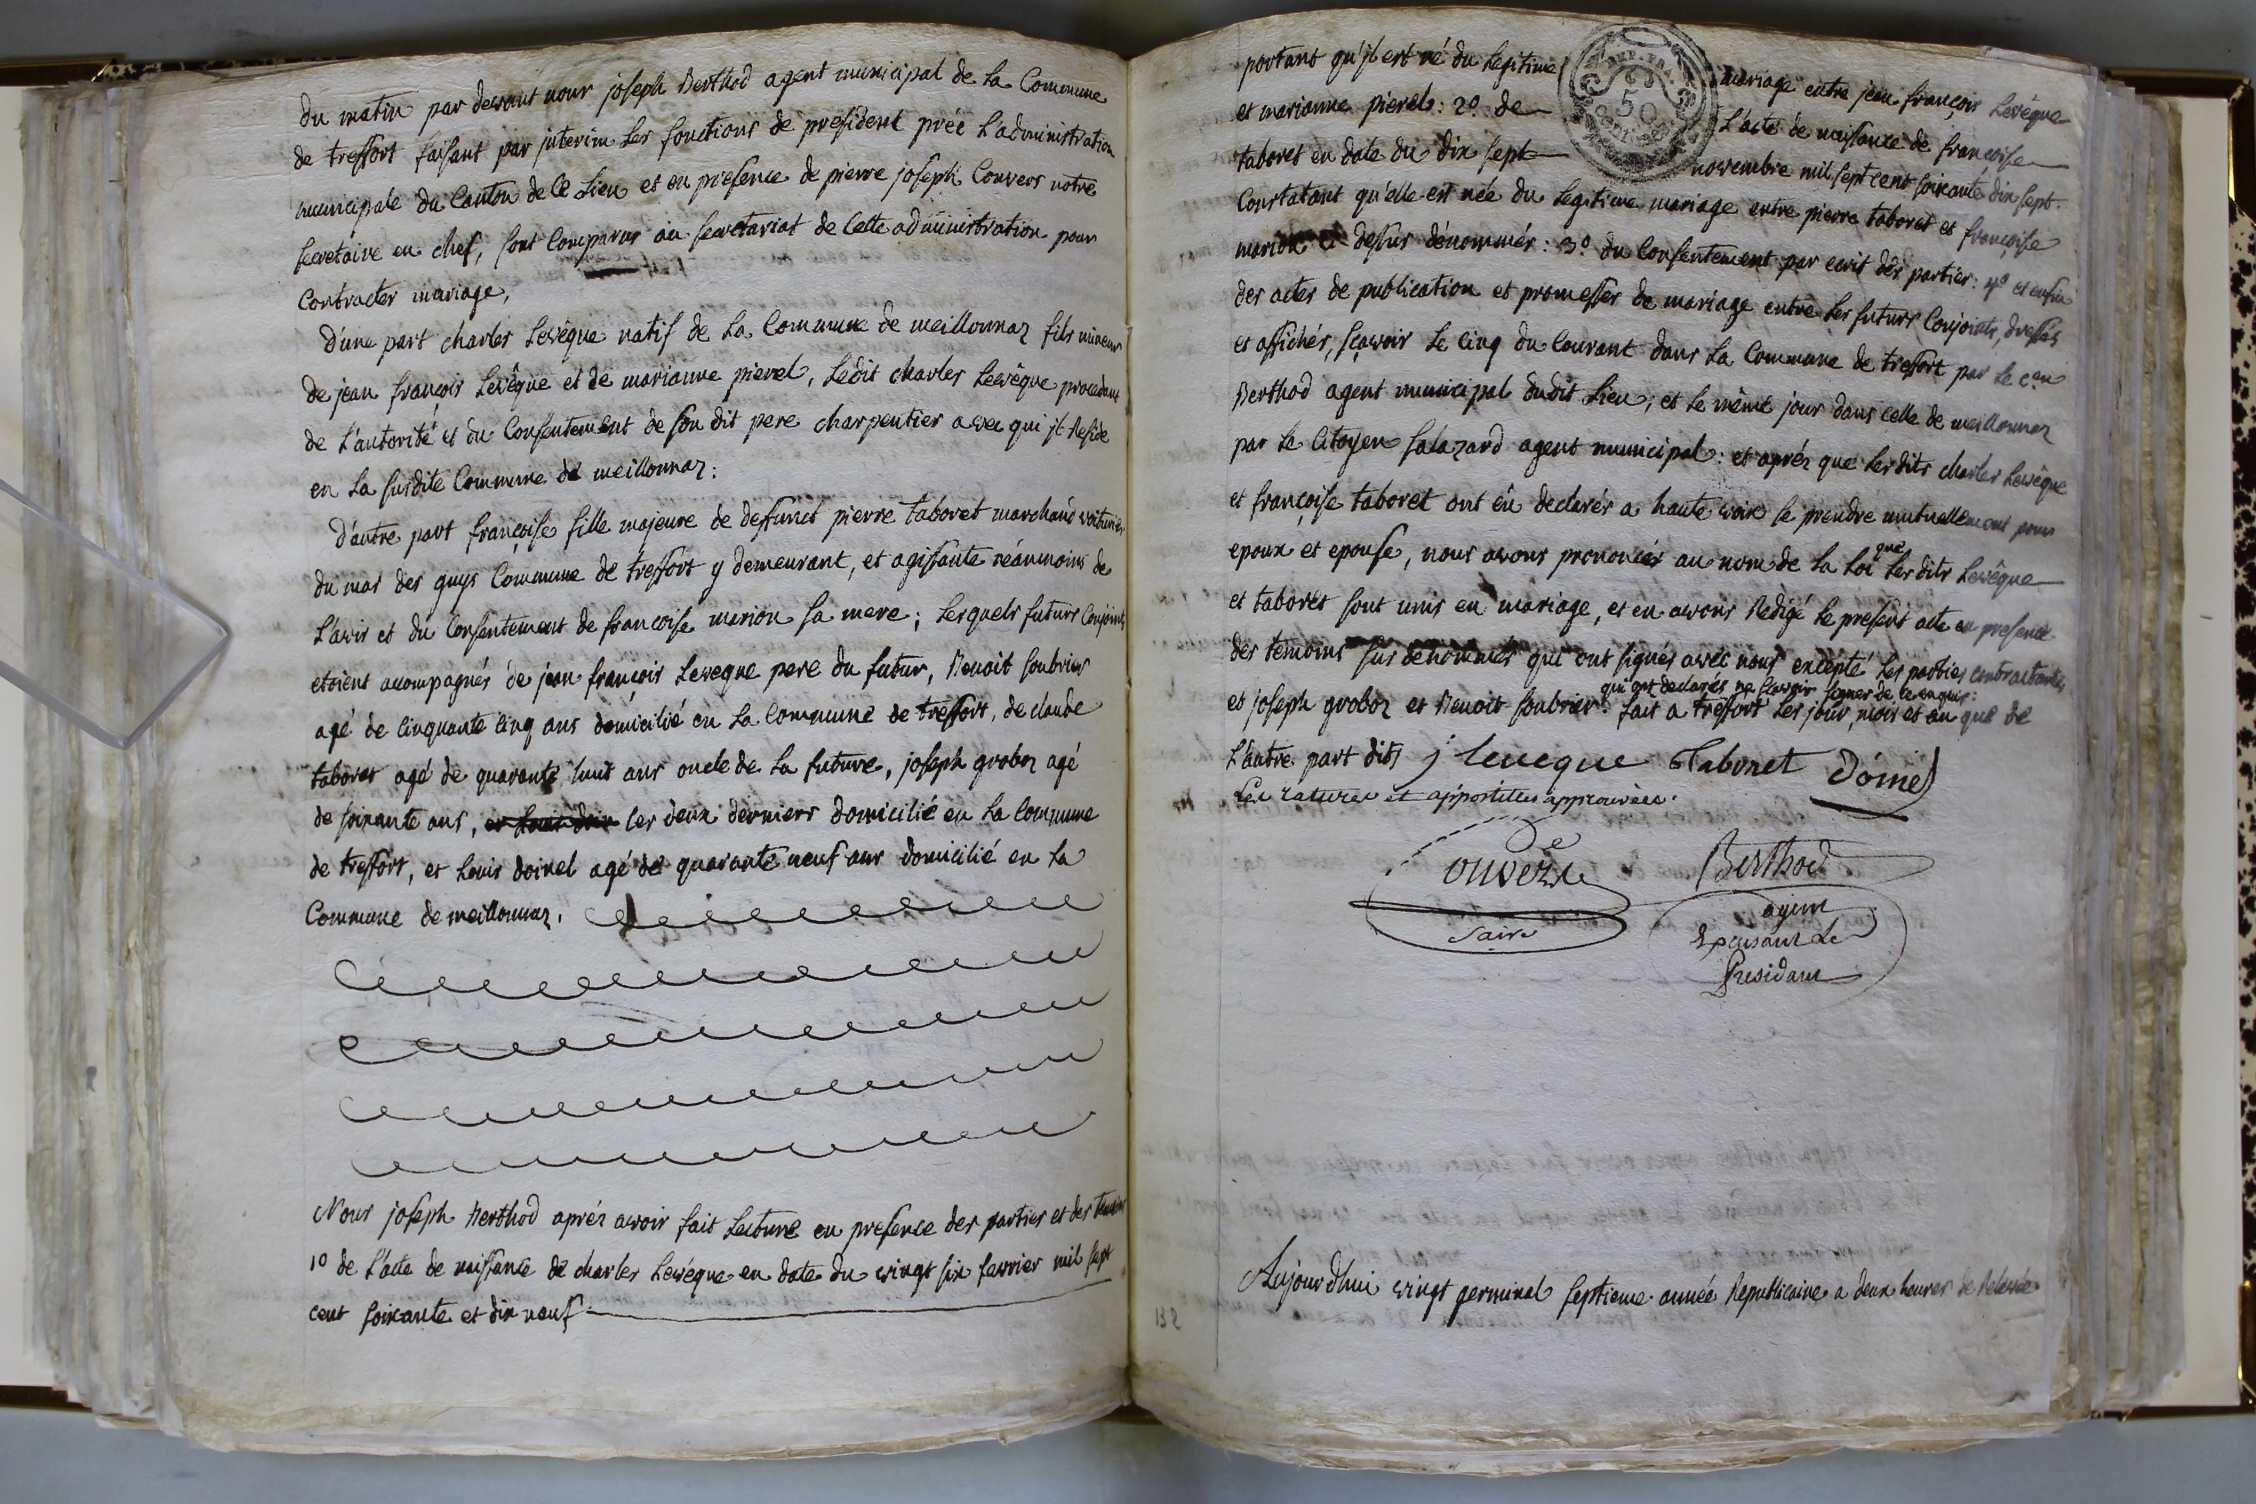 du matin par devant nous joseph Berthod agent municipal de La Commune
de treffort faisant par interim Les fonctions de president préz L'administration
municipale du Canton de Ce Lieu et en presence de pierre joseph Convers notre
secretaire en chef, sont Comparus au secretariat de Cette administration pour
Contracter mariage,
D'une part charles Levêque natif de La Commune de meillonnaz fils mineur
de jean françois Levêque et de marianne pierel, Ledit charles Levêque procedant
de L'autorité et du Consentement de son dit pere charpentier avec qui jl Reside
en La susdite Commune de meillonnaz:
D'autre part françoise fille majeure de deffunct pierre taboret marchand voiturier
du mas des guys Commune de treffort y demeurant, et agissante néanmoins de
L'avis et du Consentement de françoise marion sa mere; Lesquels futurs Conjoints
etoient acompagnés de jean françois Leveque pere du futur, Benoit soubrier
agé de Cinquante Cinq ans domicilié en La Commune de treffort, de claude
taboret agé de quarante huit ans oncle de La future, joseph groboz agé
de soixante ans, et Louis Les deux derniers domicilié en La Commune
de treffort, et Louis doinel agé de quarante neuf ans domicilié en La
Commune de meillonnaz.
Nous joseph Berthod apréz avoir fait Lecture en presence des parties et des temoins
1º de L'acte de naissance de charles Levéque en date du vingt six fevrier mil sept
cent soixante et dix neuf
portant qu'jl est né du Legitime mariage entre jean françois Levêque
REP. FRA.
50
CENT
et marianne pierel: 2º. de L'acte de naissance de francoise
taboret en date du dix sept novembre mil sept cent soixante dix sept.
Constatant qu'elle est née du Legitime mariage entre pierre taboret et françoise
marion dessus dénommés: 3º. du Consentement par ecrit des parties: 4º et enfin
des actes de publication et promesses de mariage entre Les futurs Conjoints, dressés
et affichés, sçavoir Le Cinq du Courant dans La Commune de treffort par Le c.en
Berthod agent municipal dudit Lieu; et Le même jour dans celle de meillonnaz
par Le Citoyen salazard agent municipal: et aprés que Lesdits charles Levêque
et françoise taboret ont êu declarés a haute voix se prendre mutuellement pour
epoux et epouse, nous avons prononcés au nom de La Loi que Lesdits Levêque
et taboret sont unis en mariage, et en avons Redigé Le present acte en presence
des temoins sus dénommés qui ont signés avec nous excepté Les parties contractantes
et joseph groboz et Benoit soubrier qui ont declarés ne sçavoir signer de ce enquis: fait a treffort Les jour, mois et an que de
L'autre part dits j leueque Tabonet Doinel
Les ratures et appostilles approuvées.
Convers
saire
Berthod
agent
Le
Presidant
Aujourd'hui vingt germinal septieme année Republicaine a deux heures de Relevée
132